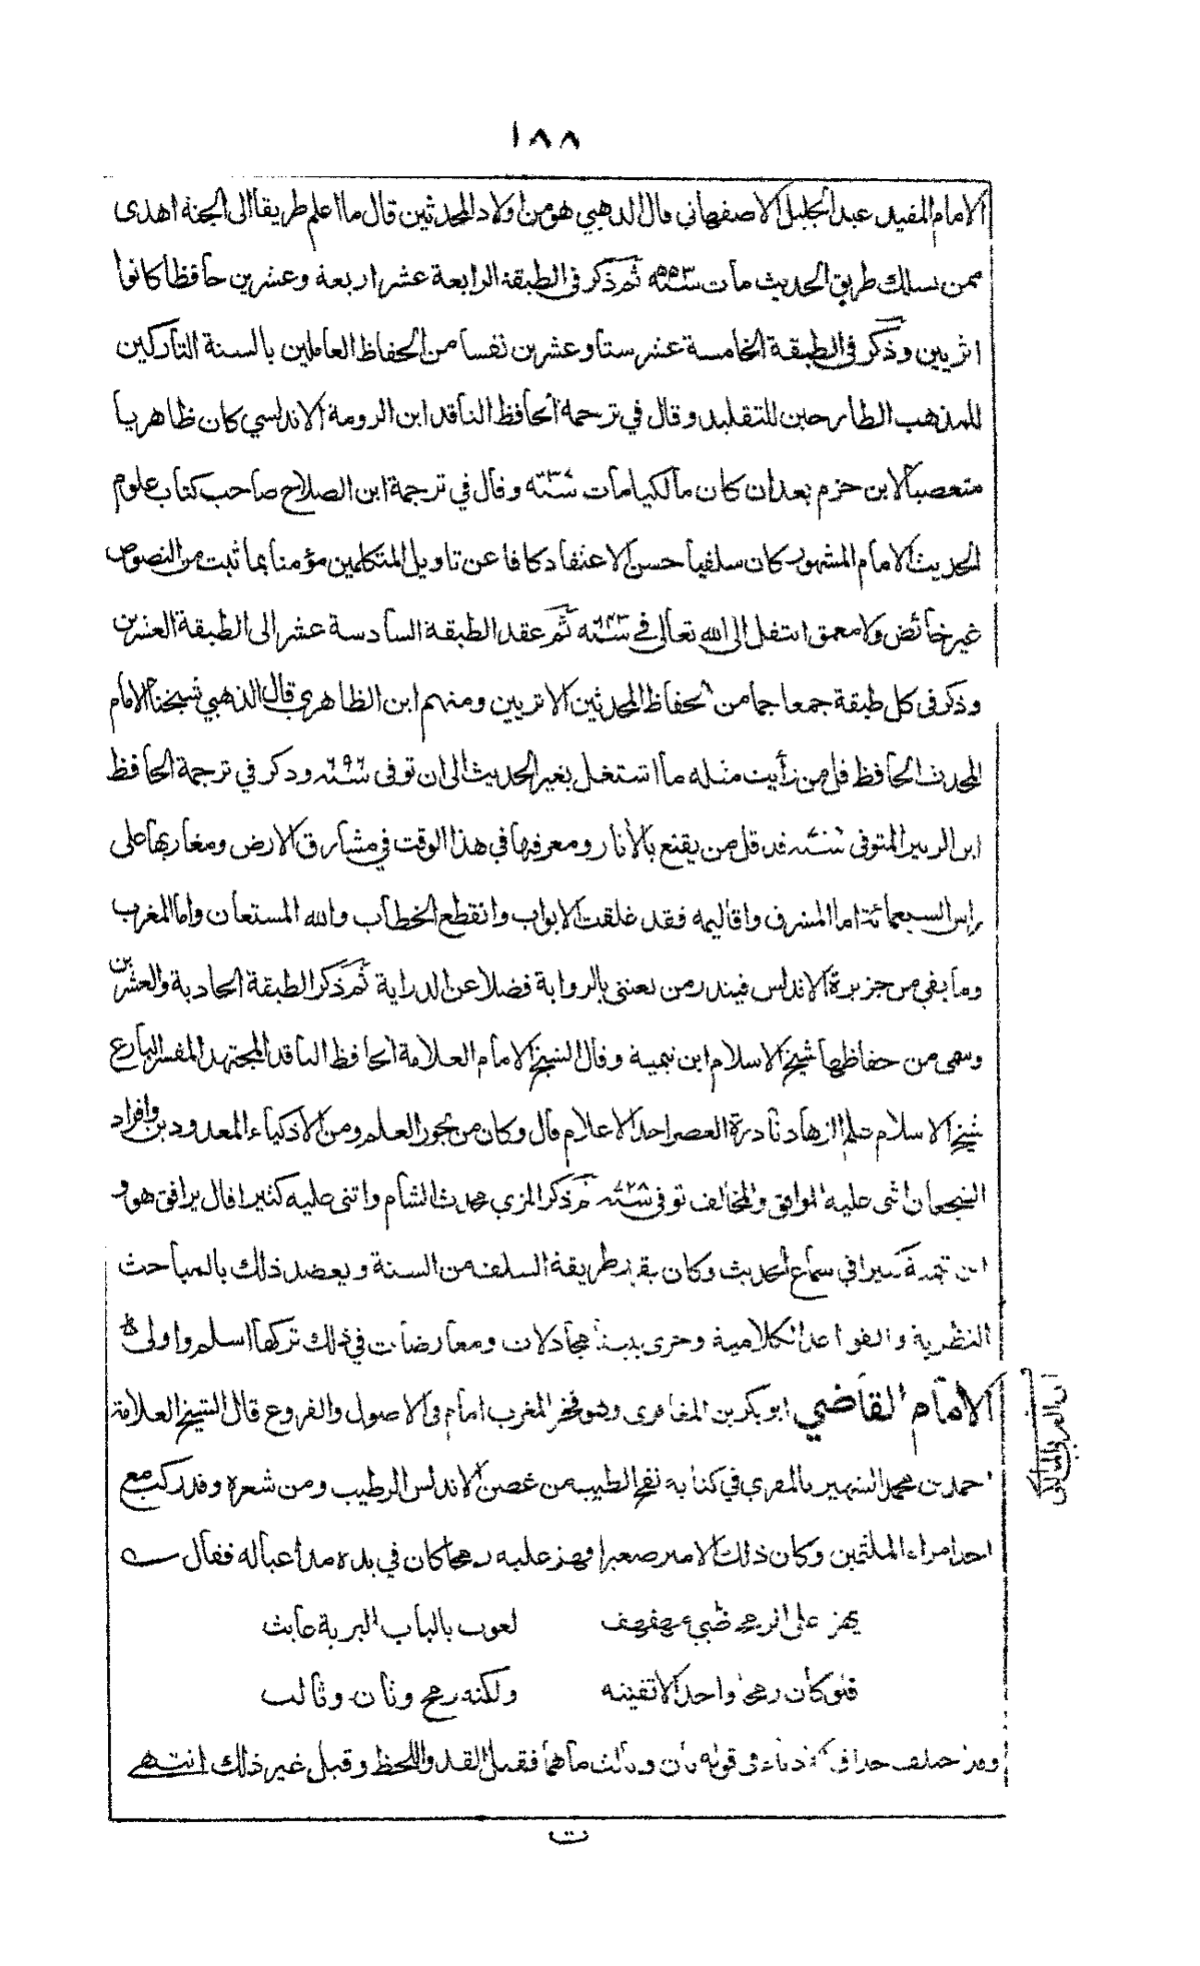 ١٨٨
الامام المفيد عبد الجليل الاصفهاني قال الذهبي هو من اولاد المحدثين قال ما اعلم طريقا الى الجنة اهدى
ممن يسلك طريق الحديث مات سنة ٥٥٣ ثم ذكر في الطبقة الرابعة عشر اربعة وعشرين حافظا كانوا
اثريين وذكر في الطبقة الخامسة عشر ستا وعشرين نفسا من الحفاظ العاملين بالسنة التاركين
للمذهب الطارحين للتقليد وقال في ترجمة الحافظ الناقد ابن الرومة الاندلسي كان ظاهريا
متعصبا لابن حزم بعد ان كان مالكيا مات سنة وقال في ترجمة ابن الصلاح صاحب كتاب علوم
الحديث الامام المشهور كان سلفيا حسن الاعتقاد كافا عن تاويل المتكلمين مؤمنا بما ثبت من النصوص
غير خائض ولا معمق انتقل الى الله تعالى في سنة ٦٤٣ ثم عقد الطبقة السادسة عشر الى الطبقة العشرين
وذكر في كل طبقة جمعا جما من الحفاظ المحدثين الاثريين ومنهم ابن الظاهري قال الذهبي شيخنا الامام
المحدث الحافظ قل من رأيت مثله ما اشتغل بغير الحديث الى ان توفى سنة ٦٩٦ وذكر في ترجمة الحافظ
ابن الزبير المتوفى سنة قد قل من يقنع بالآثار ومعرفتها في هذا الوقت في مشارق الارض ومغاربها على
راس السبعمائة اما المشرق واقاليمه فقد غلقت الابواب وانقطع الخطاب والله المستعان واما المغرب
وما بقي من جزيرة الاندلس فيندر من يعتني بالرواية فضلا عن الدراية ثم ذكر الطبقة الحادية والعشرين
وسمى من حفاظها شيخ الاسلام ابن تيمية وقال الشيخ الامام العلامة الحافظ الناقد المجتهد المفسر البارع
شيخ الاسلام علم الزهاد نادرة العصر احد الاعلام قال وكان من بحور العلم ومن الاذكياء المعدودين وافراد
الشجعان اثنى عليه الموافق والمخالف توفى سنة ٧٢٨ ثم ذكر المزي محدث الشام واثنى عليه كثيرا قال يرافق هو و
ابن تيمية كثيرا في سماع الحديث وكان يقرر طريقة السلف من السنة ويعضد ذلك بالمباحث
النظرية والقواعد الكلامية وجرى بيننا مجادلات ومعارضات في ذلك تركها اسلم واولى
الامام القاضي ابو بكر بن المعافري وهو فخر المغرب امام في الاصول والفروع قال الشيخ العلامة
احمد بن محمد الشهير بالمقري في كتابه نفح الطيب من غصن الاندلس الرطيب ومن شعره وقد ركب مع
احد امراء الملثمين وكان ذلك الامير صغيرا فهز عليه رمحا كان في يده مداعبا له فقال
يهز على الرمح ظبي مهفهف لعوب بالباب البرية عابث
فلو كان رمحا واحدا لاتقيته ولكنه رمح وثان وثالث
وقد اختلف في قوله ثان وثالث ما هما فقيل القد واللحظ وقيل غير ذلك انتهى
ت
ابن العربي المالكي